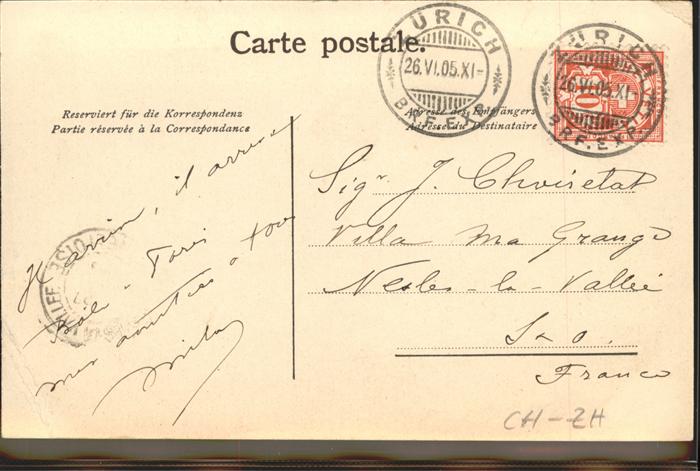 Carte postale.
ZÜRICH
26.VI.05.XI-
BRF.EXP.
ZÜRICH
26.VI.05.XI-
BRF.EXP.
10
Reserviert für die Korrespondenz
Partie réservée à la Correspondance
Adresse des Empfängers
Adresse du Destinataire
il arrive
Bâle - Paris
mes amitiés a tous
Sigr J.
Villa Ma Grange
Nesles-la-Vallée
S & O.
France
CH-ZH